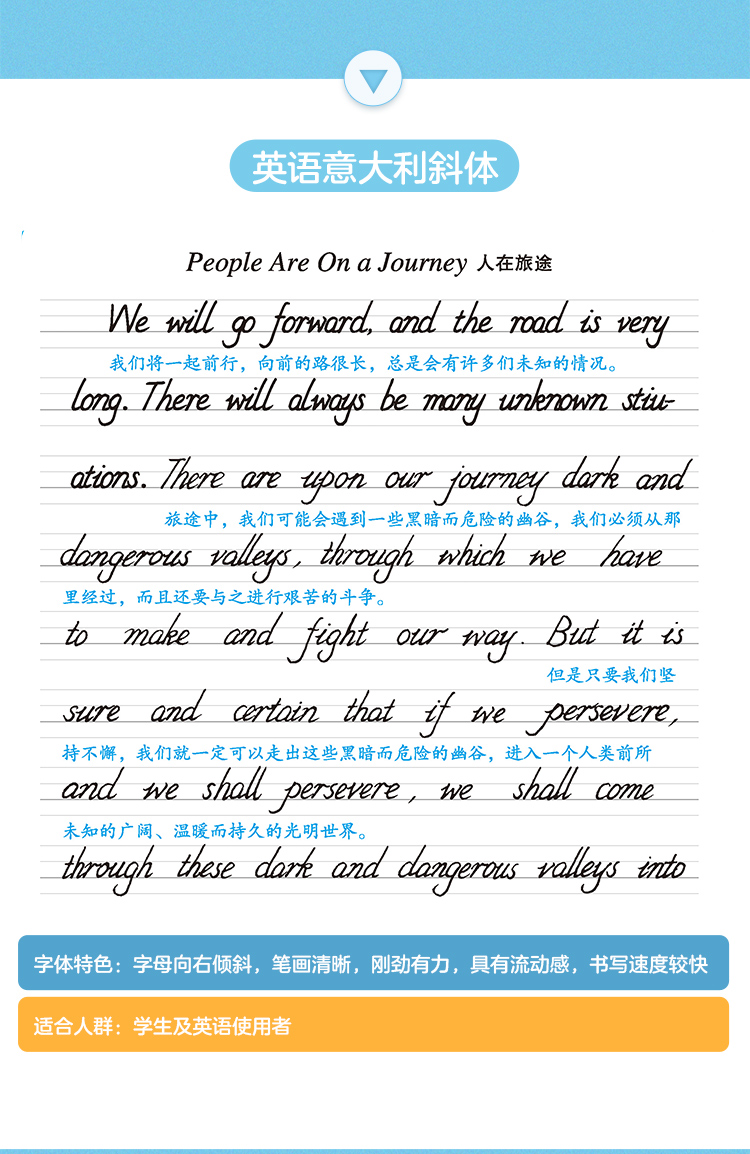 英语意大利斜体
People Are On a Journey 人在旅途
We will go forward, and the road is very
我们将一起前行，向前的路很长，总是会有许多们未知的情况。
long. There will always be many unknown stiu-
ations. There are upon our journey dark and
旅途中，我们可能会遇到一些黑暗而危险的幽谷，我们必须从那
dangerous valleys, through which we have
里经过，而且还要与之进行艰苦的斗争。
to make and fight our way. But it is
但是只要我们坚
sure and certain that if we persevere,
持不懈，我们就一定可以走出这些黑暗而危险的幽谷，进入一个人类前所
and we shall persevere, we shall come
未知的广阔、温暖而持久的光明世界。
through these dark and dangerous valleys into
字体特色：字母向右倾斜，笔画清晰，刚劲有力，具有流动感，书写速度较快
适合人群：学生及英语使用者